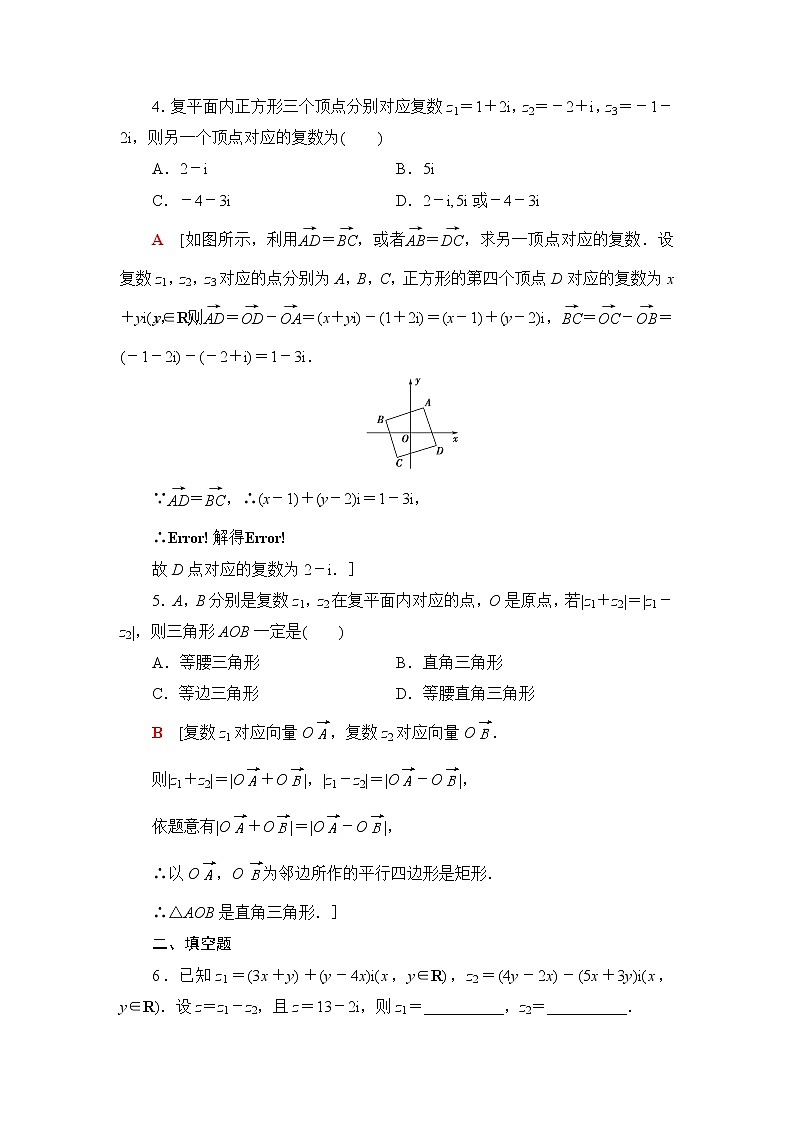 4.复平面内正方形三个顶点分别对应复数 z₁=1+2i,z₂=-2+i,z₃=-1-
2i,则另一个顶点对应的复数为(　　)
A.2-i　　B.5i
C.-4-3i　　D.2-i,5i 或-4-3i
A　[如图所示,利用AD→=BC→,或者AB→=DC→,求另一顶点对应的复数.设
复数 z₁,z₂,z₃ 对应的点分别为 A,B,C,正方形的第四个顶点 D 对应的复数为 x
+yi(x,y∈R),则AD→=OD→-OA→=(x+yi)-(1+2i)=(x-1)+(y-2)i,BC→=OC→-OB→=
(-1-2i)-(-2+i)=1-3i.
y
A
B
O
x
D
C
∵AD→=BC→,∴(x-1)+(y-2)i=1-3i,
∴Error! 解得Error!
故 D 点对应的复数为 2-i.]
5.A,B 分别是复数 z₁,z₂ 在复平面内对应的点,O 是原点,若|z₁+z₂|=|z₁-
z₂|,则三角形 AOB 一定是(　　)
A.等腰三角形　　B.直角三角形
C.等边三角形　　D.等腰直角三角形
B　[复数 z₁ 对应向量 O A→,复数 z₂ 对应向量 O B→.
则|z₁+z₂|=|O A→+O B→|,|z₁-z₂|=|O A→-O B→|,
依题意有|O A→+O B→|=|O A→-O B→|,
∴以 O A→,O B→为邻边所作的平行四边形是矩形.
∴△AOB 是直角三角形.]
二、填空题
6.已知 z₁=(3x+y)+(y-4x)i(x,y∈R),z₂=(4y-2x)-(5x+3y)i(x,
y∈R).设 z=z₁-z₂,且 z=13-2i,则 z₁=__________,z₂=__________.